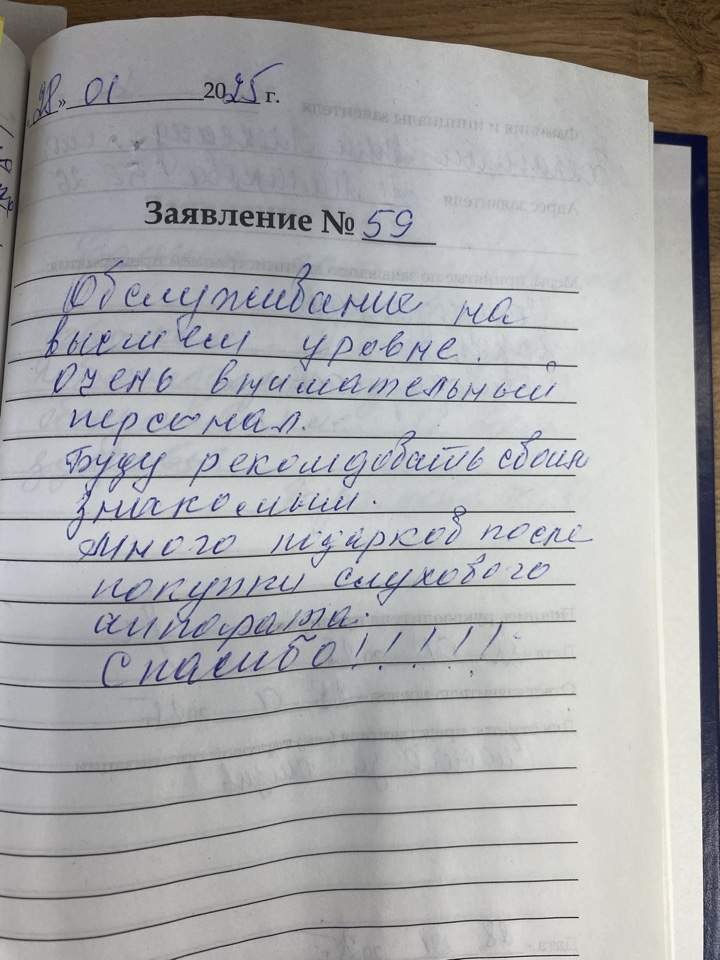 28 » 01 2025 г.
Заявление № 59
Обслуживание на
высшем уровне.
очень внимательный
персонал.
Буду рекомдовать своим
знакомым.
Много подарков после
покупки слухового
аппарата.
Спасибо!!!!!!